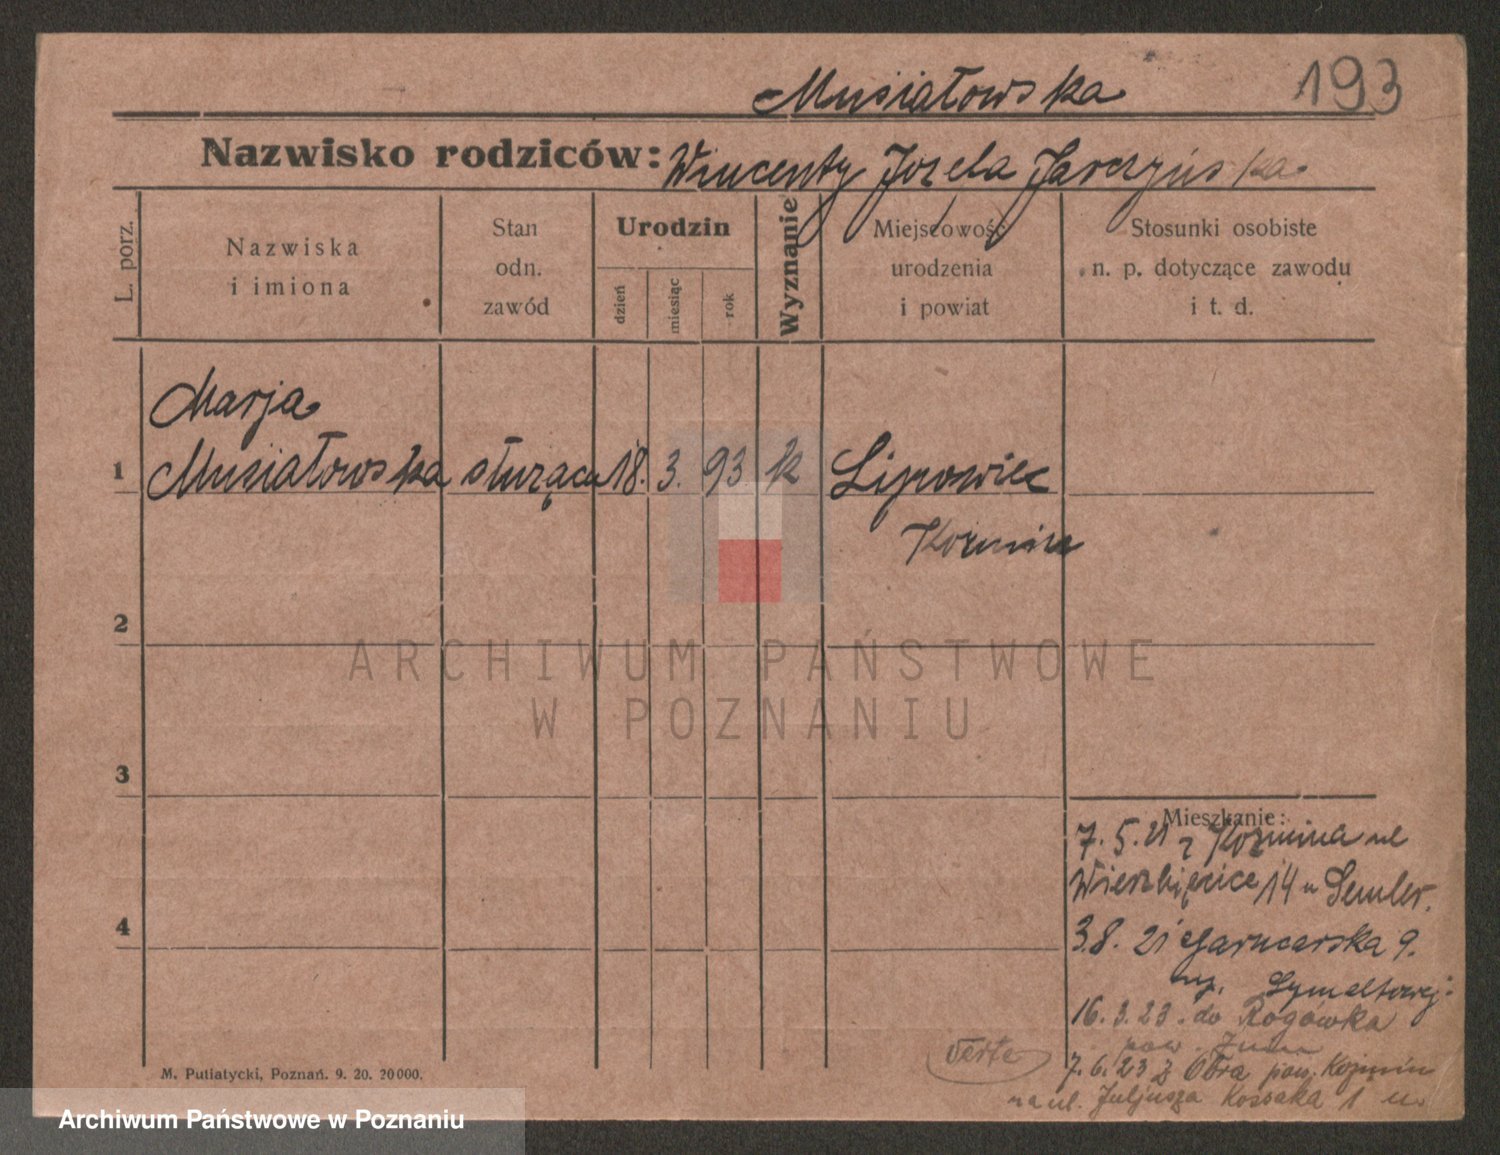 Musiałowska 193
Nazwisko rodziców: Wincenty Józefa Jarczyńska
L. porz.
Nazwiska
i imiona
Stan
odn.
zawód
Urodzin
dzień
miesiąc
rok
Wyznanie
Miejscowość
urodzenia
i powiat
Stosunki osobiste
n. p. dotyczące zawodu
i t. d.
Marja
1 Musiałowska służąca 18. 3. 93 k Lipowiec
Koźmin
2
ARCHIWUM PAŃSTWOWE
W POZNANIU
3
4
Mieszkanie:
7. 5. 21 z Koźmina ul
Wierzbięcice 14 u Semler.
3.8. 21 Garncarska 9.
16. 3. 23. do Rogówka
pow. Żnin
7. 6. 23 z Obra pow. Koźmin
na ul. Juljusza Kossaka 1
verte
M. Putiatycki, Poznań. 9. 20. 20000.
Archiwum Państwowe w Poznaniu